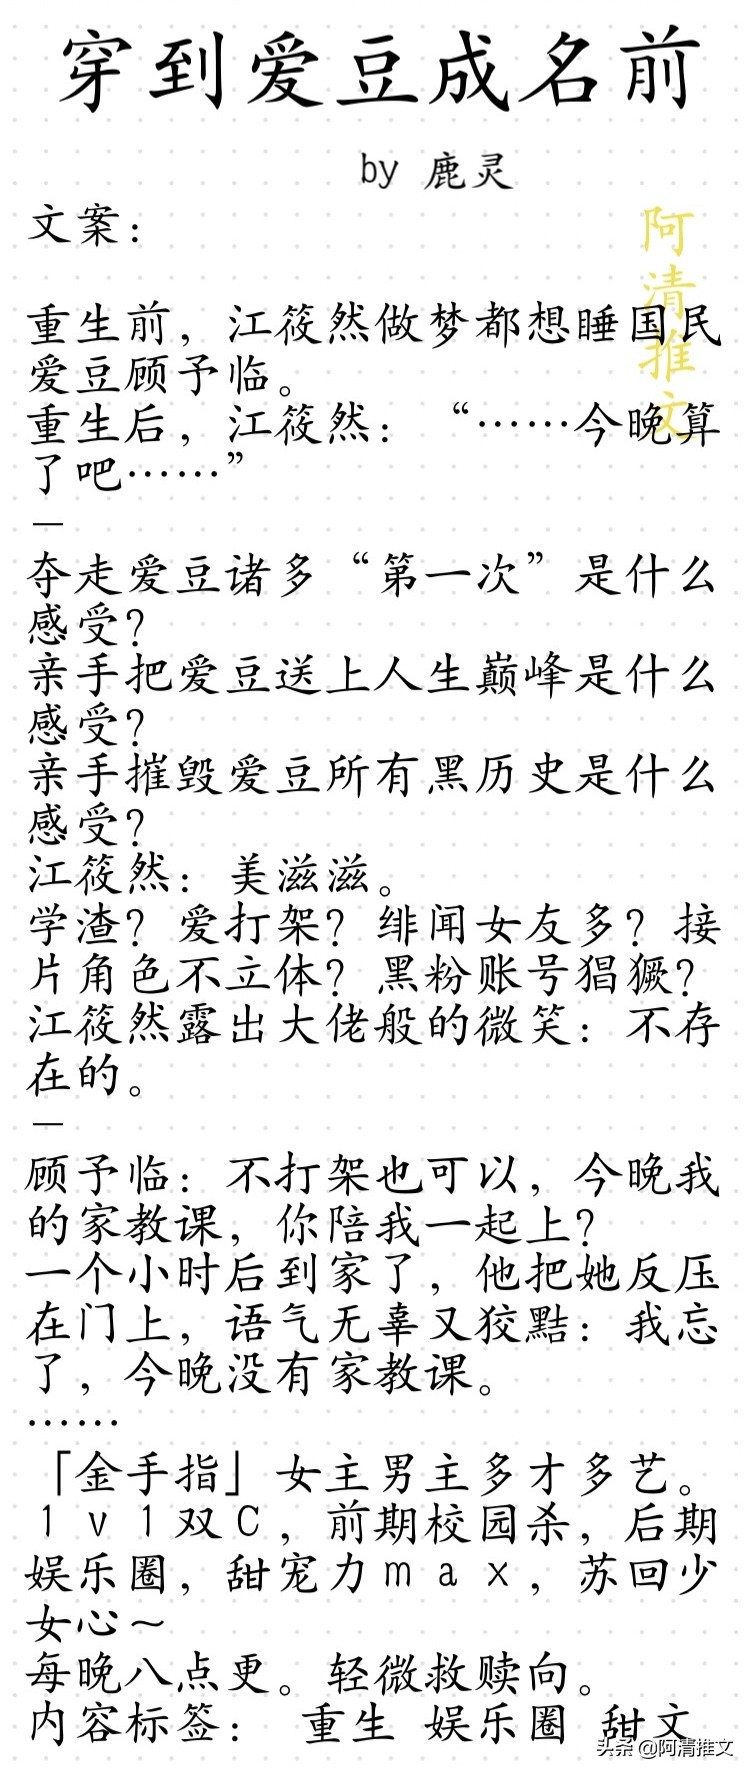 穿到爱豆成名前
by 鹿灵
文案：
阿清推文
重生前，江筱然做梦都想睡国民
爱豆顾予临。
重生后，江筱然：“……今晚算
了吧……”
—
夺走爱豆诸多“第一次”是什么
感受？
亲手把爱豆送上人生巅峰是什么
感受？
亲手摧毁爱豆所有黑历史是什么
感受？
江筱然：美滋滋。
学渣？爱打架？绯闻女友多？接
片角色不立体？黑粉账号猖獗？
江筱然露出大佬般的微笑：不存
在的。
—
顾予临：不打架也可以，今晚我
的家教课，你陪我一起上？
一个小时后到家了，他把她反压
在门上，语气无辜又狡黠：我忘
了，今晚没有家教课。
……
「金手指」女主男主多才多艺。
1v1双C，前期校园杀，后期
娱乐圈，甜宠力max，苏回少
女心～
每晚八点更。轻微救赎向。
内容标签： 重生 娱乐圈 甜文
头条 @阿清推文